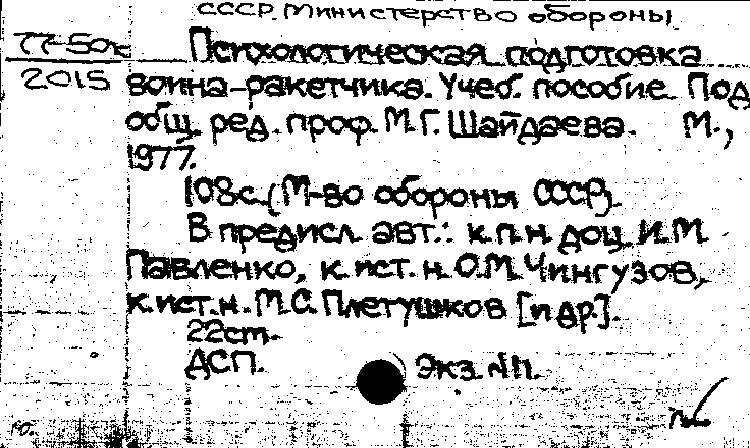 СССР. Министерство обороны.
77-50к Психологическая подготовка
2015 воина-ракетчика. Учеб. пособие. Под
общ. ред. проф. М.Г. Шайдаева. М.,
1977.
108с. (М-во обороны СССР).
В предисл. авт.: к.п.н. доц. И.М.
Павленко, к. ист. н. О.М. Чингузов,
к. ист. н. М.С. Плетушков [и др.].
22см.
ДСП. Экз. №